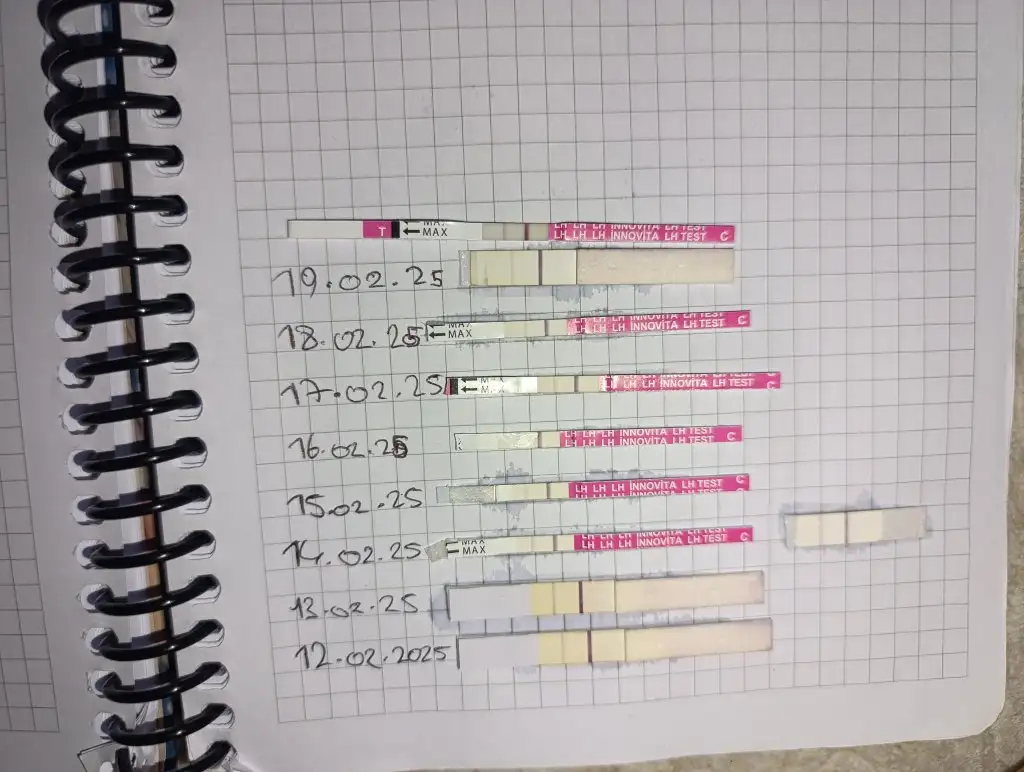 T MAX LH LH LH INNOVITA LH TEST C
LH LH LH INNOVITA LH TEST
19.02.25
18.02.25 MAX LH LH INNOVITA LH TEST C
MAX LH LH LH INNOVITA LH TEST
17.02.25 LH LH INNOVITA LH TEST C
16.02.25 LH LH LH INNOVITA LH TEST C
LH LH LH INNOVITA LH TEST
15.02.25 LH LH LH INNOVITA LH TEST C
LH LH LH INNOVITA LH TEST
14.02.25 MAX LH LH LH INNOVITA LH TEST C
MAX LH LH LH INNOVITA LH TEST
13.02.25
12.02.2025